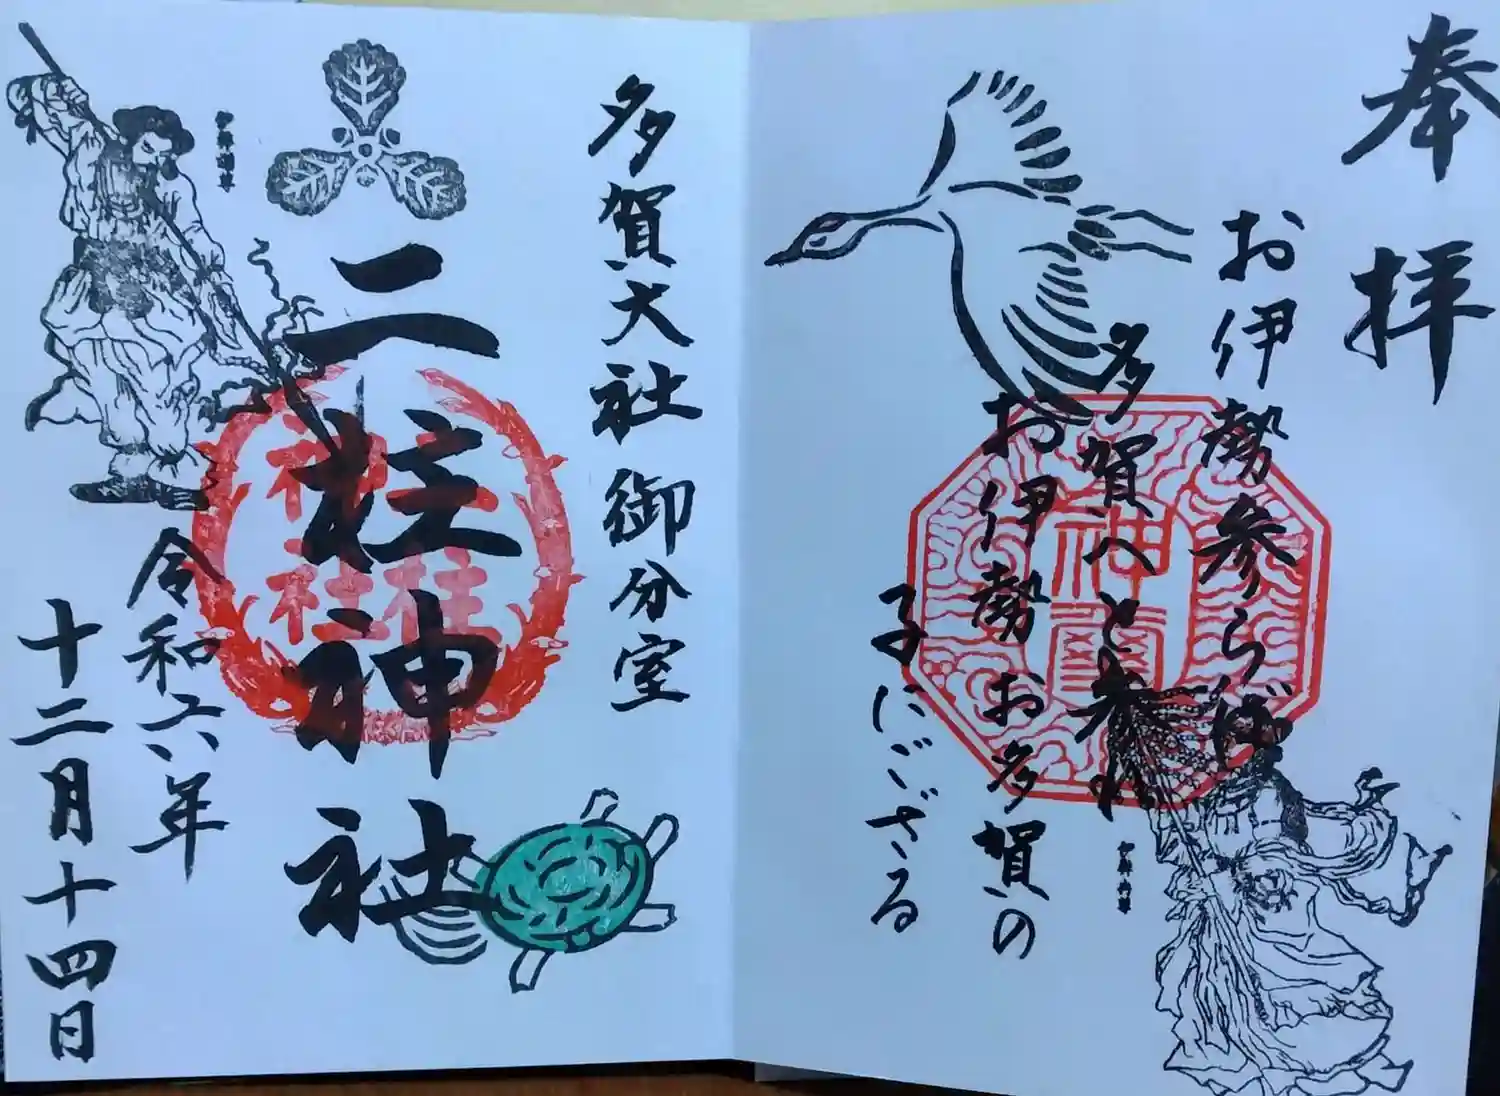 奉拝
お伊勢参らば
多賀へと参れ
お伊勢お多賀の
子にござる
多賀大社御分室
二柱神社
令和六年
十二月十四日
伊弉諾尊
伊弉冉尊